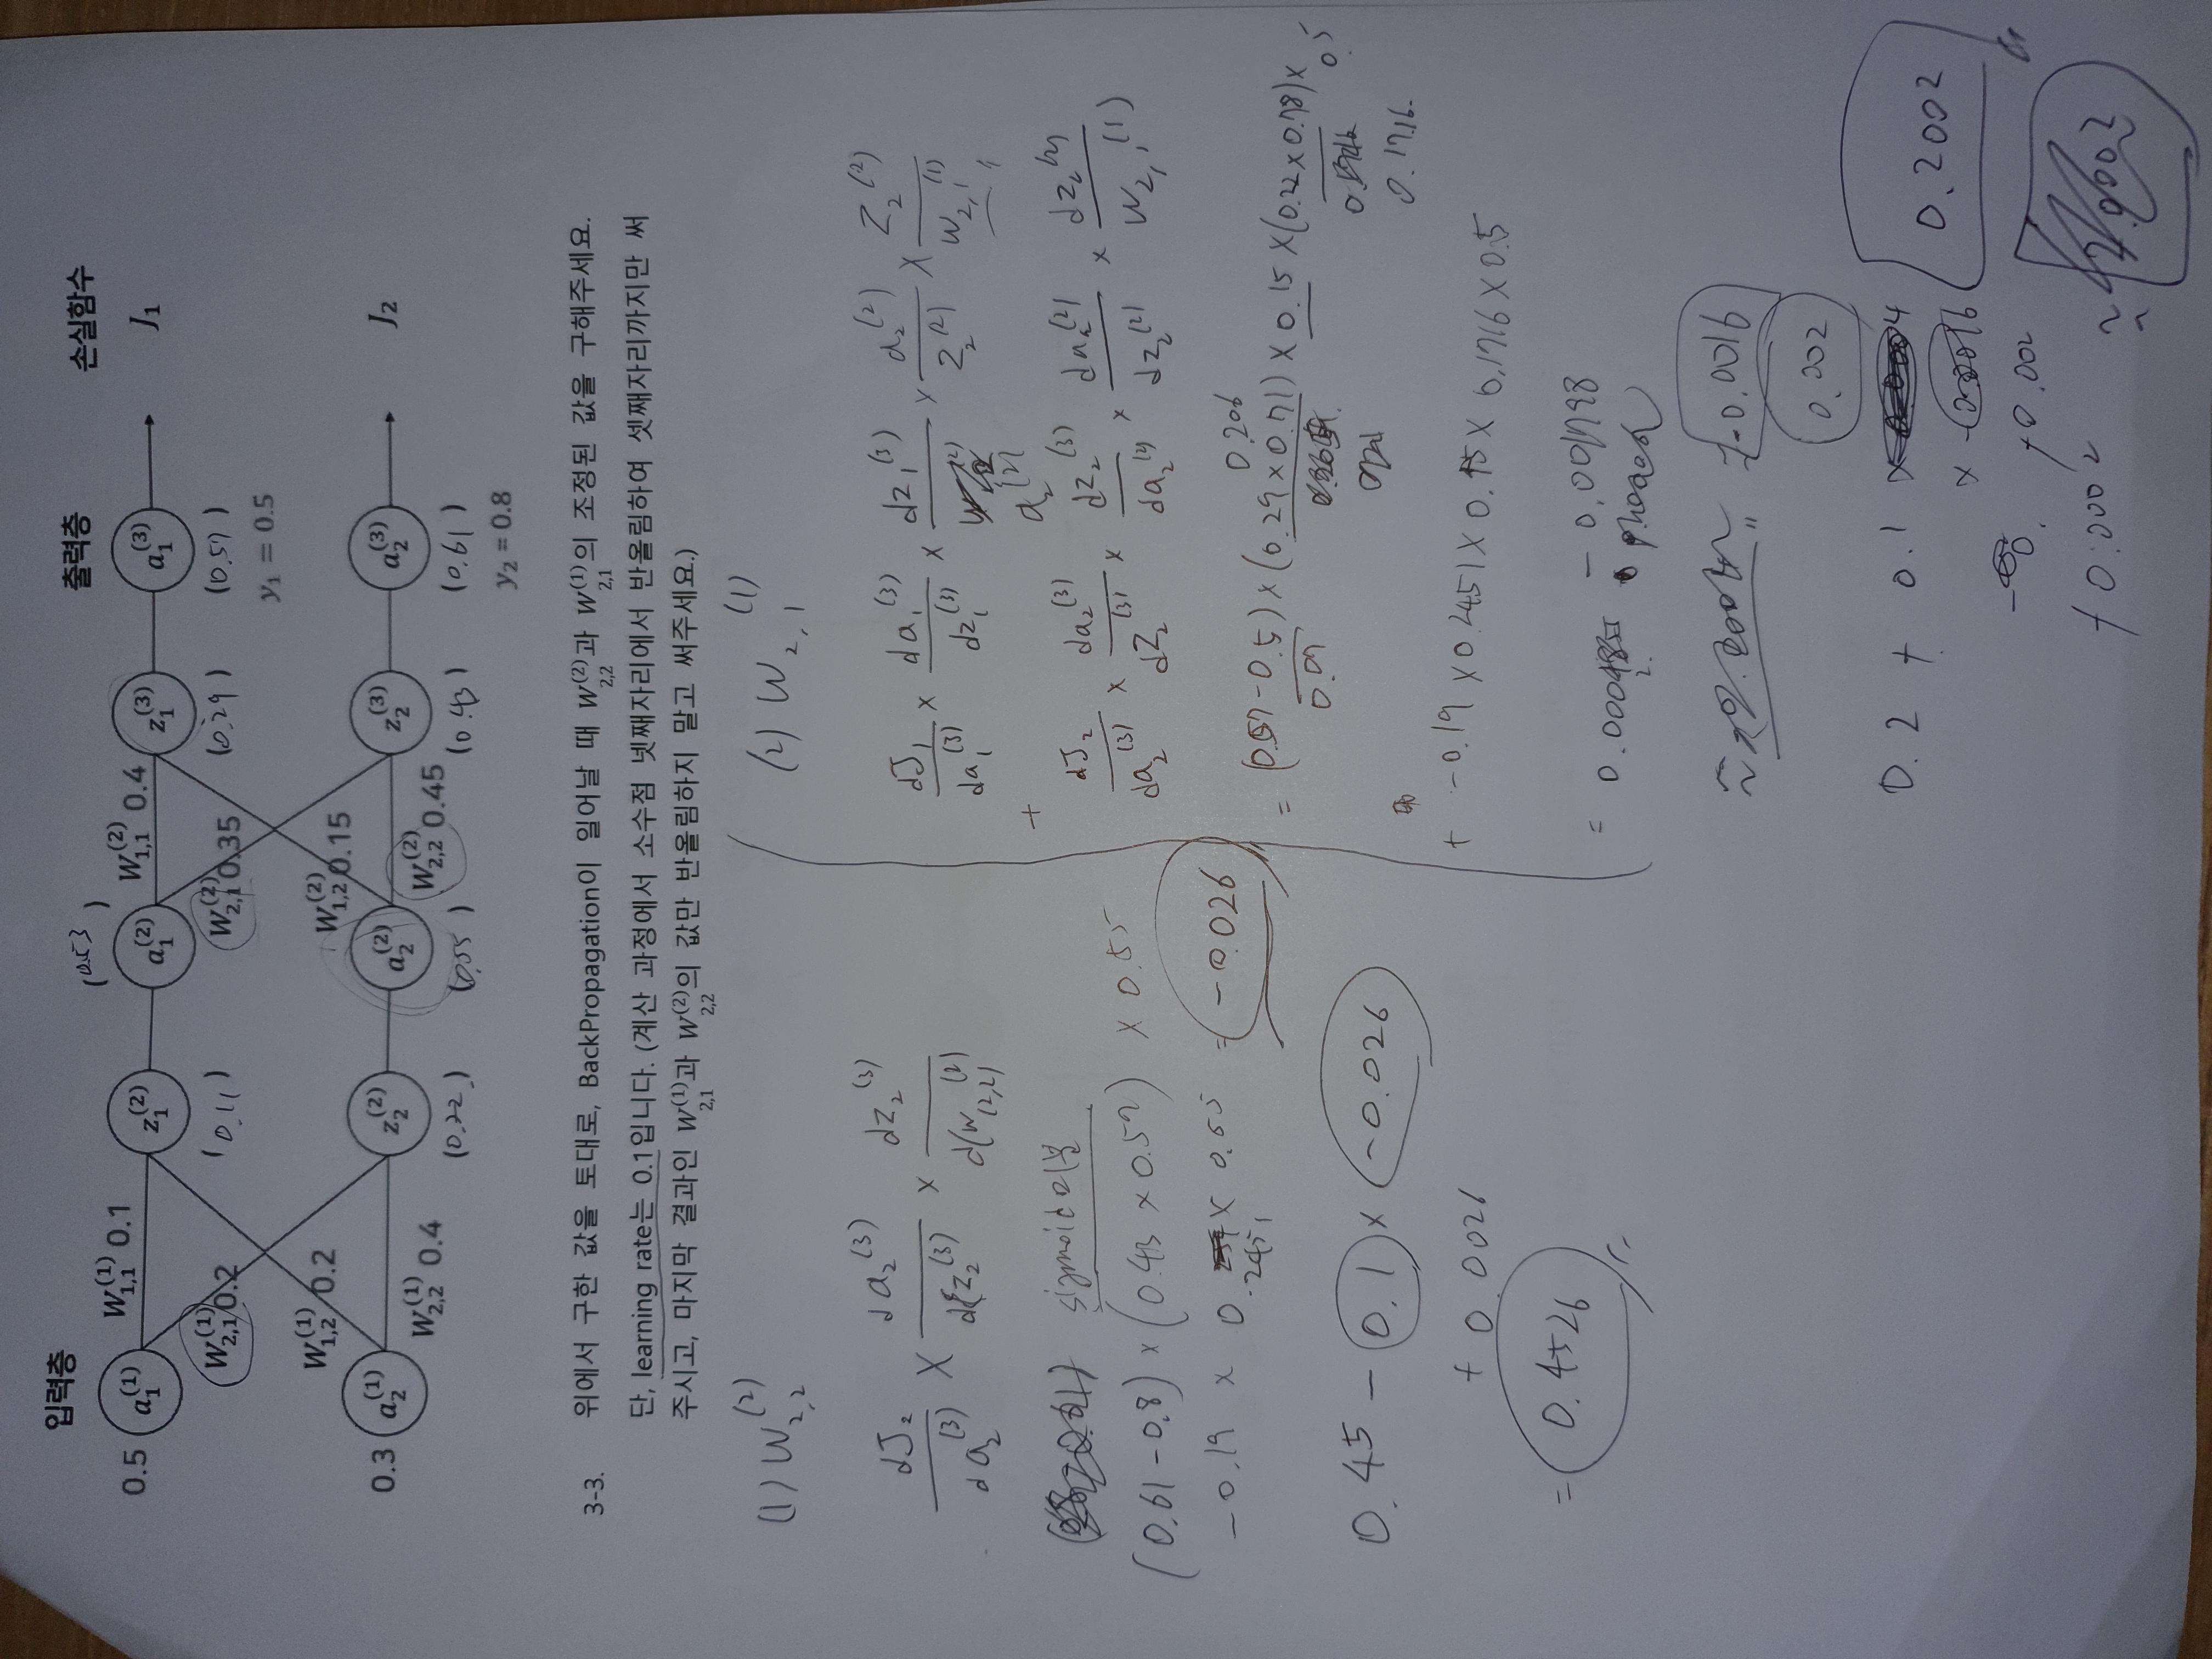 입력층
출력층
손실함수
(0.53)
0.5 a₁⁽¹⁾ W₁,₁⁽¹⁾ 0.1 z₁⁽²⁾ a₁⁽²⁾ W₁,₁⁽²⁾ 0.4 z₁⁽³⁾ a₁⁽³⁾ J₁
W₂,₁⁽¹⁾ 0.2 (0.11) W₂,₁⁽²⁾ 0.35 (0.29) (0.57)
y₁ = 0.5
W₁,₂⁽¹⁾ 0.2 W₁,₂⁽²⁾ 0.15
0.3 a₂⁽¹⁾ z₂⁽²⁾ a₂⁽²⁾ z₂⁽³⁾ a₂⁽³⁾ J₂
W₂,₂⁽¹⁾ 0.4 W₂,₂⁽²⁾ 0.45
(0.22) (0.55) (0.43) (0.61)
y₂ = 0.8
3-3. 위에서 구한 값을 토대로, BackPropagation이 일어날 때 W₂,₂⁽²⁾과 W₂,₁⁽¹⁾의 조정된 값을 구해주세요.
단, learning rate는 0.1입니다. (계산 과정에서 소수점 넷째자리에서 반올림하여 셋째자리까지만 써
주시고, 마지막 결과인 W₂,₁⁽¹⁾과 W₂,₂⁽²⁾의 값만 반올림하지 말고 써주세요.)
(1) W₂,₂⁽²⁾
dJ₂/da₂⁽³⁾ × da₂⁽³⁾/dz₂⁽³⁾ × dz₂⁽³⁾/d(W₍₂,₂₎⁽²⁾
sigmoid 미분
(0.61-0.8) × (0.43 × 0.57) × 0.55
-0.19 × 0.2451 × 0.55 = -0.026
0.45 - 0.1 × -0.026
+ 0.0026
= 0.4526
(2) W₂,₁⁽¹⁾
dJ₁/da₁⁽³⁾ × da₁⁽³⁾/dz₁⁽³⁾ × dz₁⁽³⁾/a₂⁽²⁾ × a₂⁽²⁾/z₂⁽²⁾ × z₂⁽²⁾/W₂,₁⁽¹⁾
+
dJ₂/da₂⁽³⁾ × da₂⁽³⁾/dz₂⁽³⁾ × dz₂⁽³⁾/da₂⁽²⁾ × da₂⁽²⁾/dz₂⁽²⁾ × dz₂⁽²⁾/W₂,₁⁽¹⁾
0.206
= (0.57-0.5) × (0.29 × 0.71) × 0.15 × (0.22 × 0.78) × 0.5
0.07
0.1716
+ -0.19 × 0.2451 × 0.45 × 0.1716 × 0.5
= 0.000 - 0.001798
≈ -0.0016
0.002
0.2 + 0.1
0.2002
+0.002
+0.0002